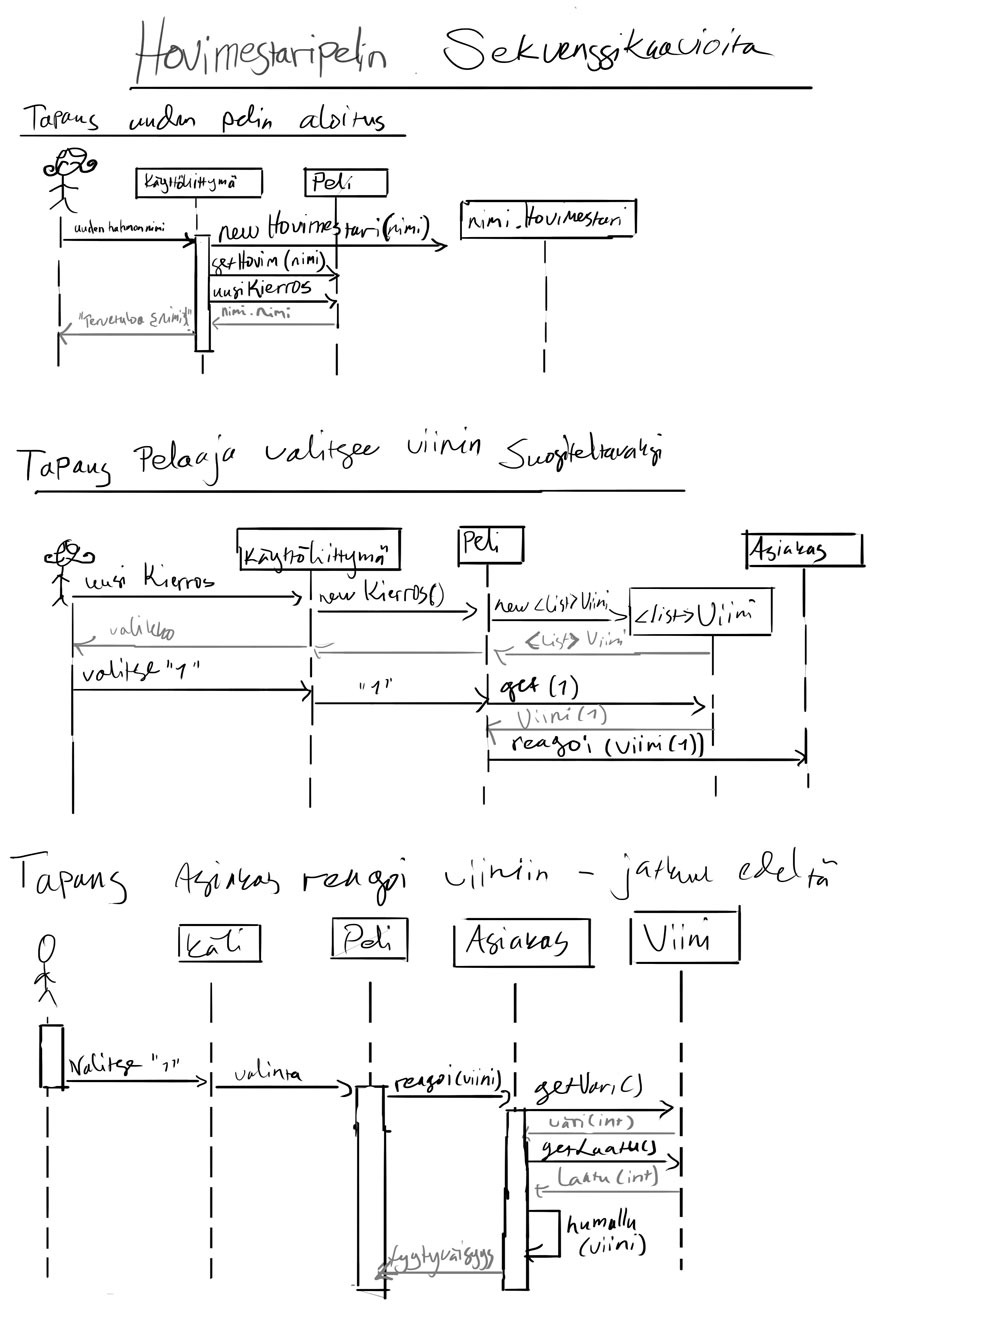 Hovimestaripelin Sekvenssikaavioita
Tapaus uuden pelin aloitus
Käyttöliittymä
Peli
nimi.Hovimestari
uuden hahmon nimi
new Hovimestari(nimi)
getHovim(nimi)
uusiKierros
nimi.nimi
"Tervetuloa {nimi}"
Tapaus Pelaaja valitsee viinin Suositeltavaksi
Käyttöliittymä
Peli
Asiakas
uusi Kierros
new Kierros()
new <List>Viini
<List>Viini
valikko
<List> Viini
valitse "1"
"1"
get (1)
Viini(1)
reagoi (Viini(1))
Tapaus Asiakas reagoi viiniin - jatkuu edeltä
Käli
Peli
Asiakas
Viini
Valitse "1"
valinta
reagoi(viini)
getVari()
väri(int)
getLaatu()
Laatu(int)
humallu
(viini)
tyytyväisyys